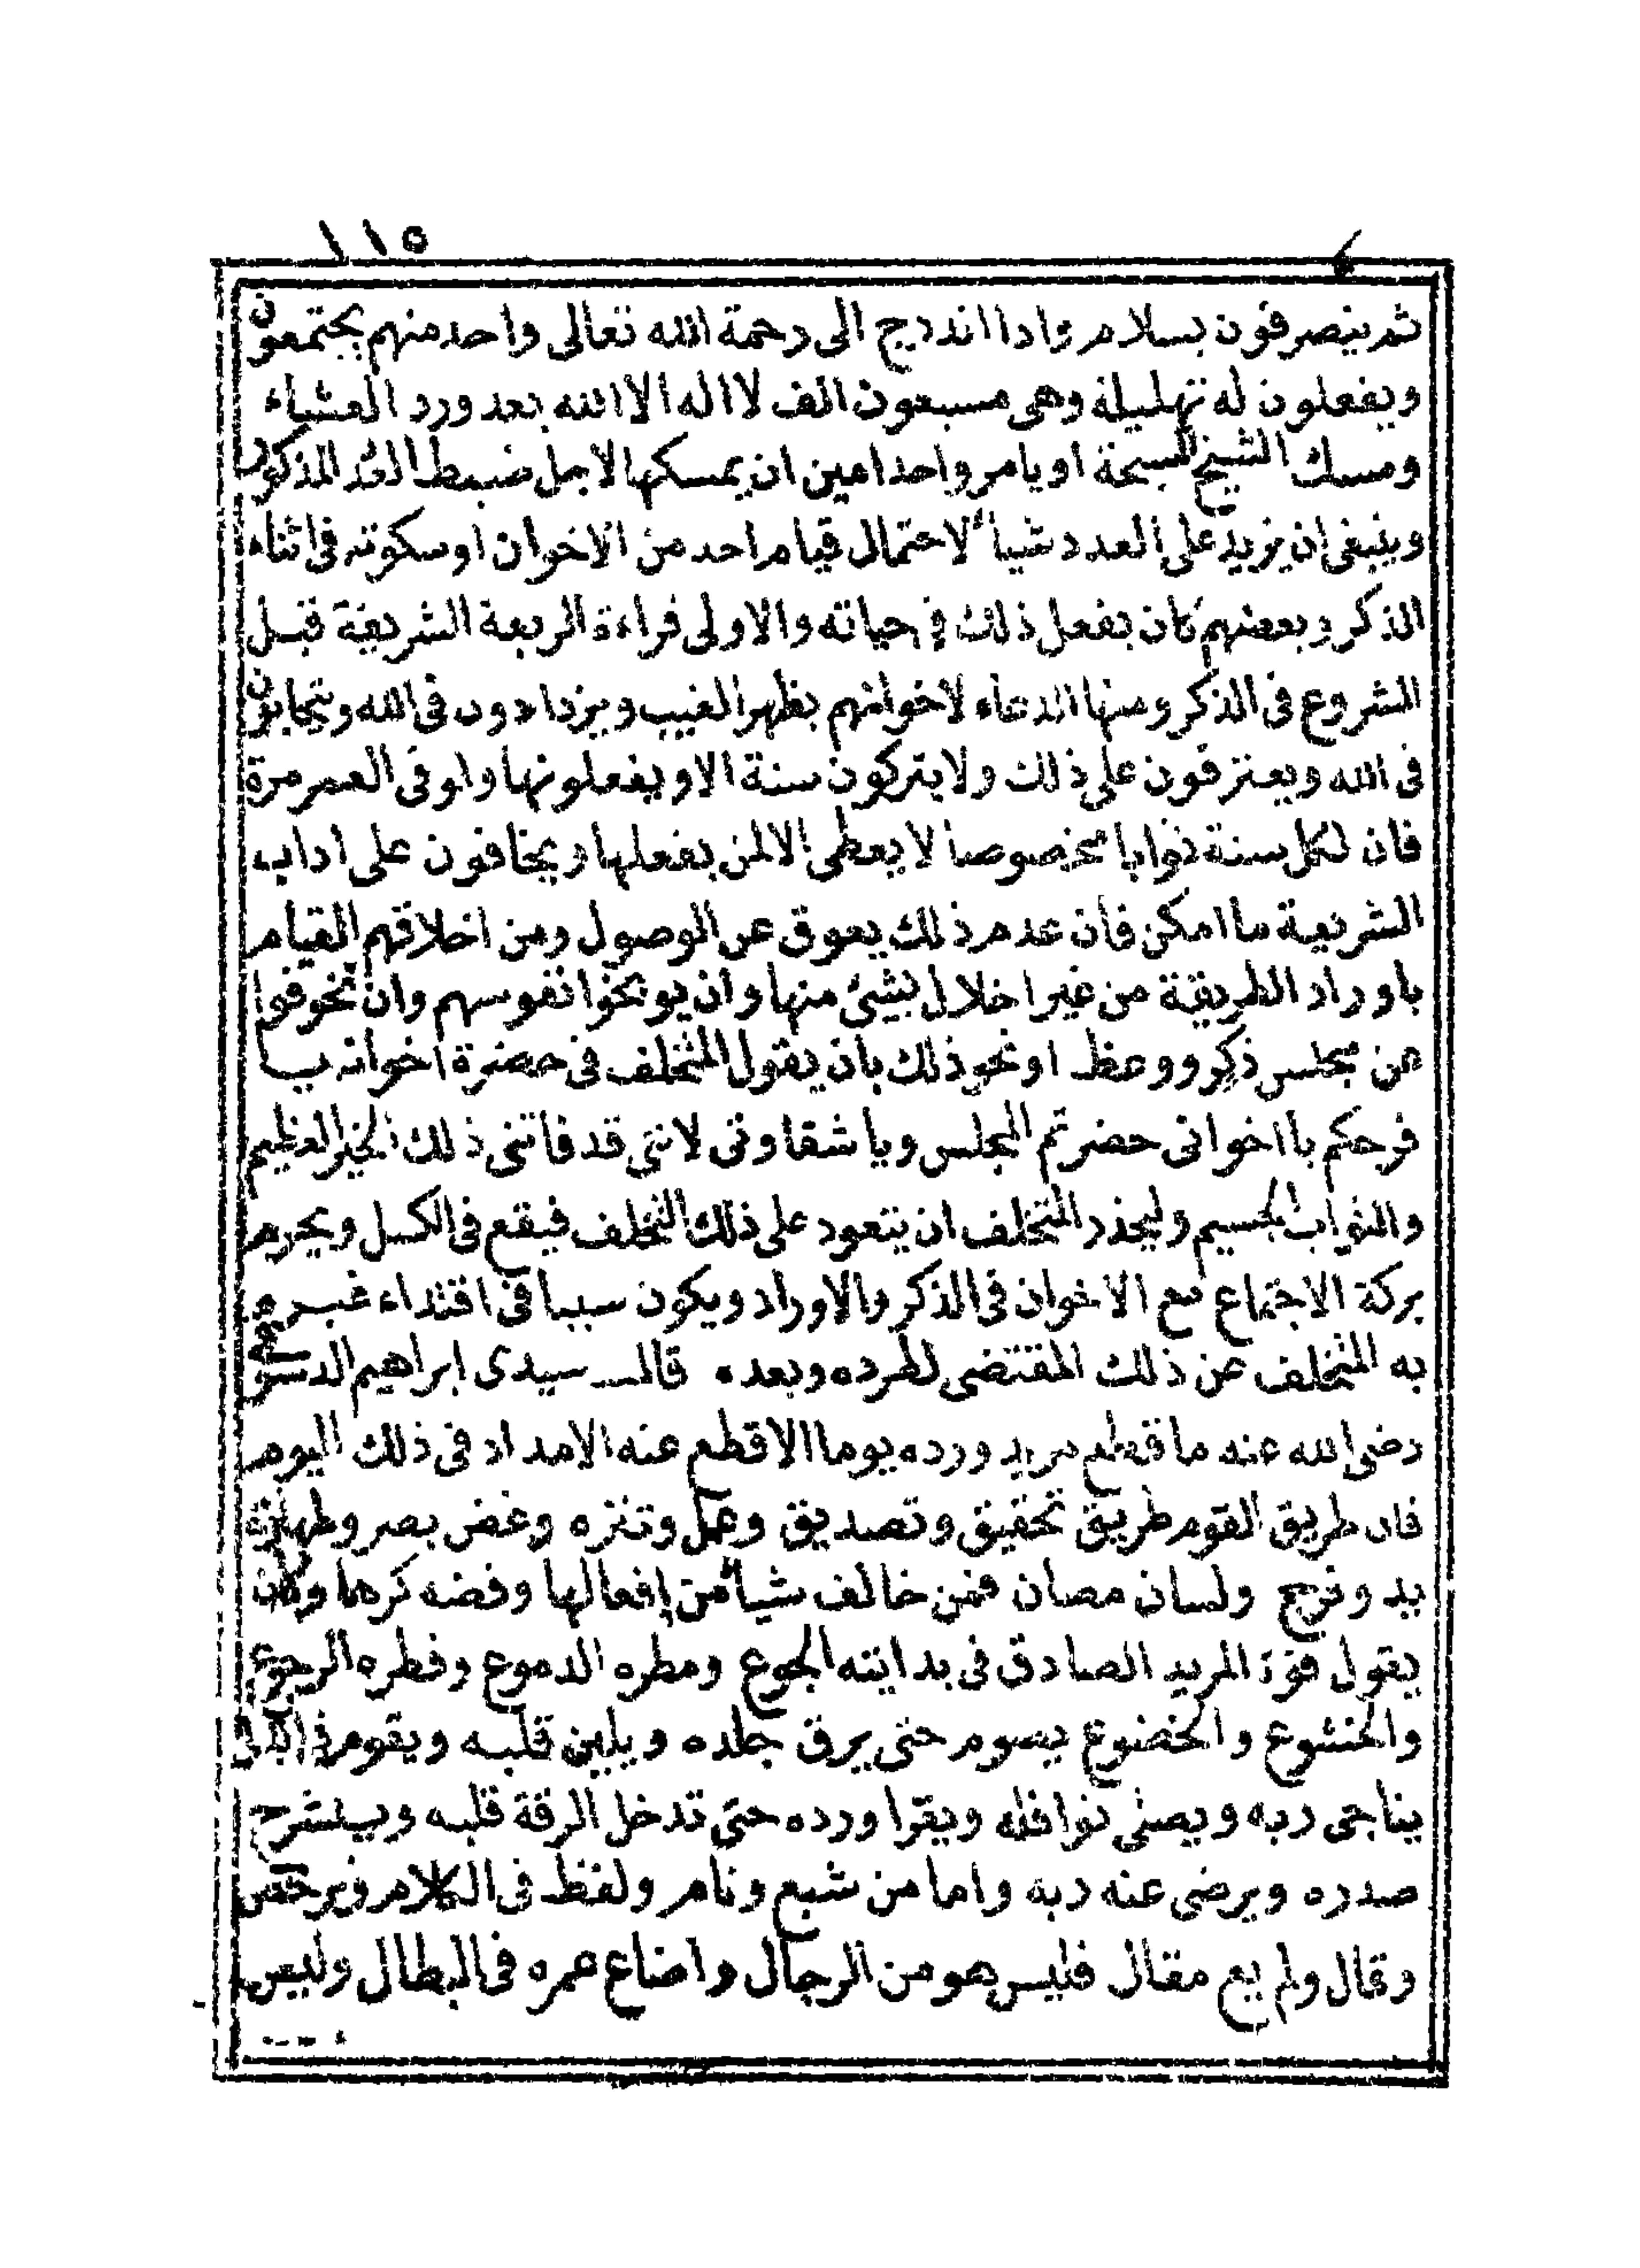 ١١٥
ثم ينصرفون بسلام واذا اندرج الى رحمة الله تعالى واحد منهم يجتمعون
ويفعلون له تهليلة وهى سبعون الف لا اله الا الله بعد ورد العشاء
ومسك الشيخ السبحة او يامر واحدا معين ان يمسكها لاجل ضبط العدد المذكور
وينبغى ان يزيد على العدد شيأ لاحتمال قيام احد من الاخوان او سكوته فى اثناء
الذكر وبعضهم كان يفعل ذلك فى حياته والاولى قراءة الربعة الشريفة قبل
الشروع فى الذكر ومنها الدعاء لاخوانهم بظهر الغيب ويزدادون فى الله ويتحابون
فى الله ويعتزفون على ذلك ولا يتركون سنة الا ويفعلونها ولو فى العمر مرة
فان لكل سنة ثوابا مخصوصا لا يعطى الا لمن يفعلها ويخافون على اداب
الشريعة ما امكن فان عدم ذلك يعوق عن الوصول ومن اخلاقهم القيام
باوراد الطريقة من غير اخلال بشئ منها وان يوبخوا نفوسهم وان تخوفوا
عن مجلس ذكر ووعظ او نحو ذلك بان يقول المتخلف فى حضرة اخوانه يا
فرحكم يا اخوانى حضرتم المجلس ويا شقاوتى لاننى قد فاتنى ذلك الخير العظيم
والثواب الجسيم وليحذر المتخلف ان يتعود على ذلك التخلف فيقع فى الكسل ويحرم
بركة الاجتماع مع الاخوان فى الذكر والاوراد ويكون سببا فى اقتداء غيره
به المتخلف عن ذلك المقتضى لطرده وبعده قال سيدى ابراهيم الدسوقى
رضى الله عنه ما قطع مريد ورده يوما الا قطع عنه الامداد فى ذلك اليوم
فان طريق القوم طريق تحقيق وتصديق وعمل وتنزه وغض بصر وطهارة
يد وفرج ولسان مصان فمن خالف شيأ من افعالها رفضه كرها وكان
يقول قوة المريد الصادق فى بدايته الجوع ومطره الدموع وفطره الرجوع
والخشوع والخضوع يصوم حتى يرق جلده ويلين قلبه ويقوم فى الليل
يناجى ربه ويصلى نوافله ويقرا ورده حتى تدخل الرقة قلبه وينشرح
صدره ويرضى عنه ربه واما من شبع ونام ولفظ فى الكلام وترخص
وقال ولم يع مقال فليس هو من الرجال واضاع عمره فى البطال وليس